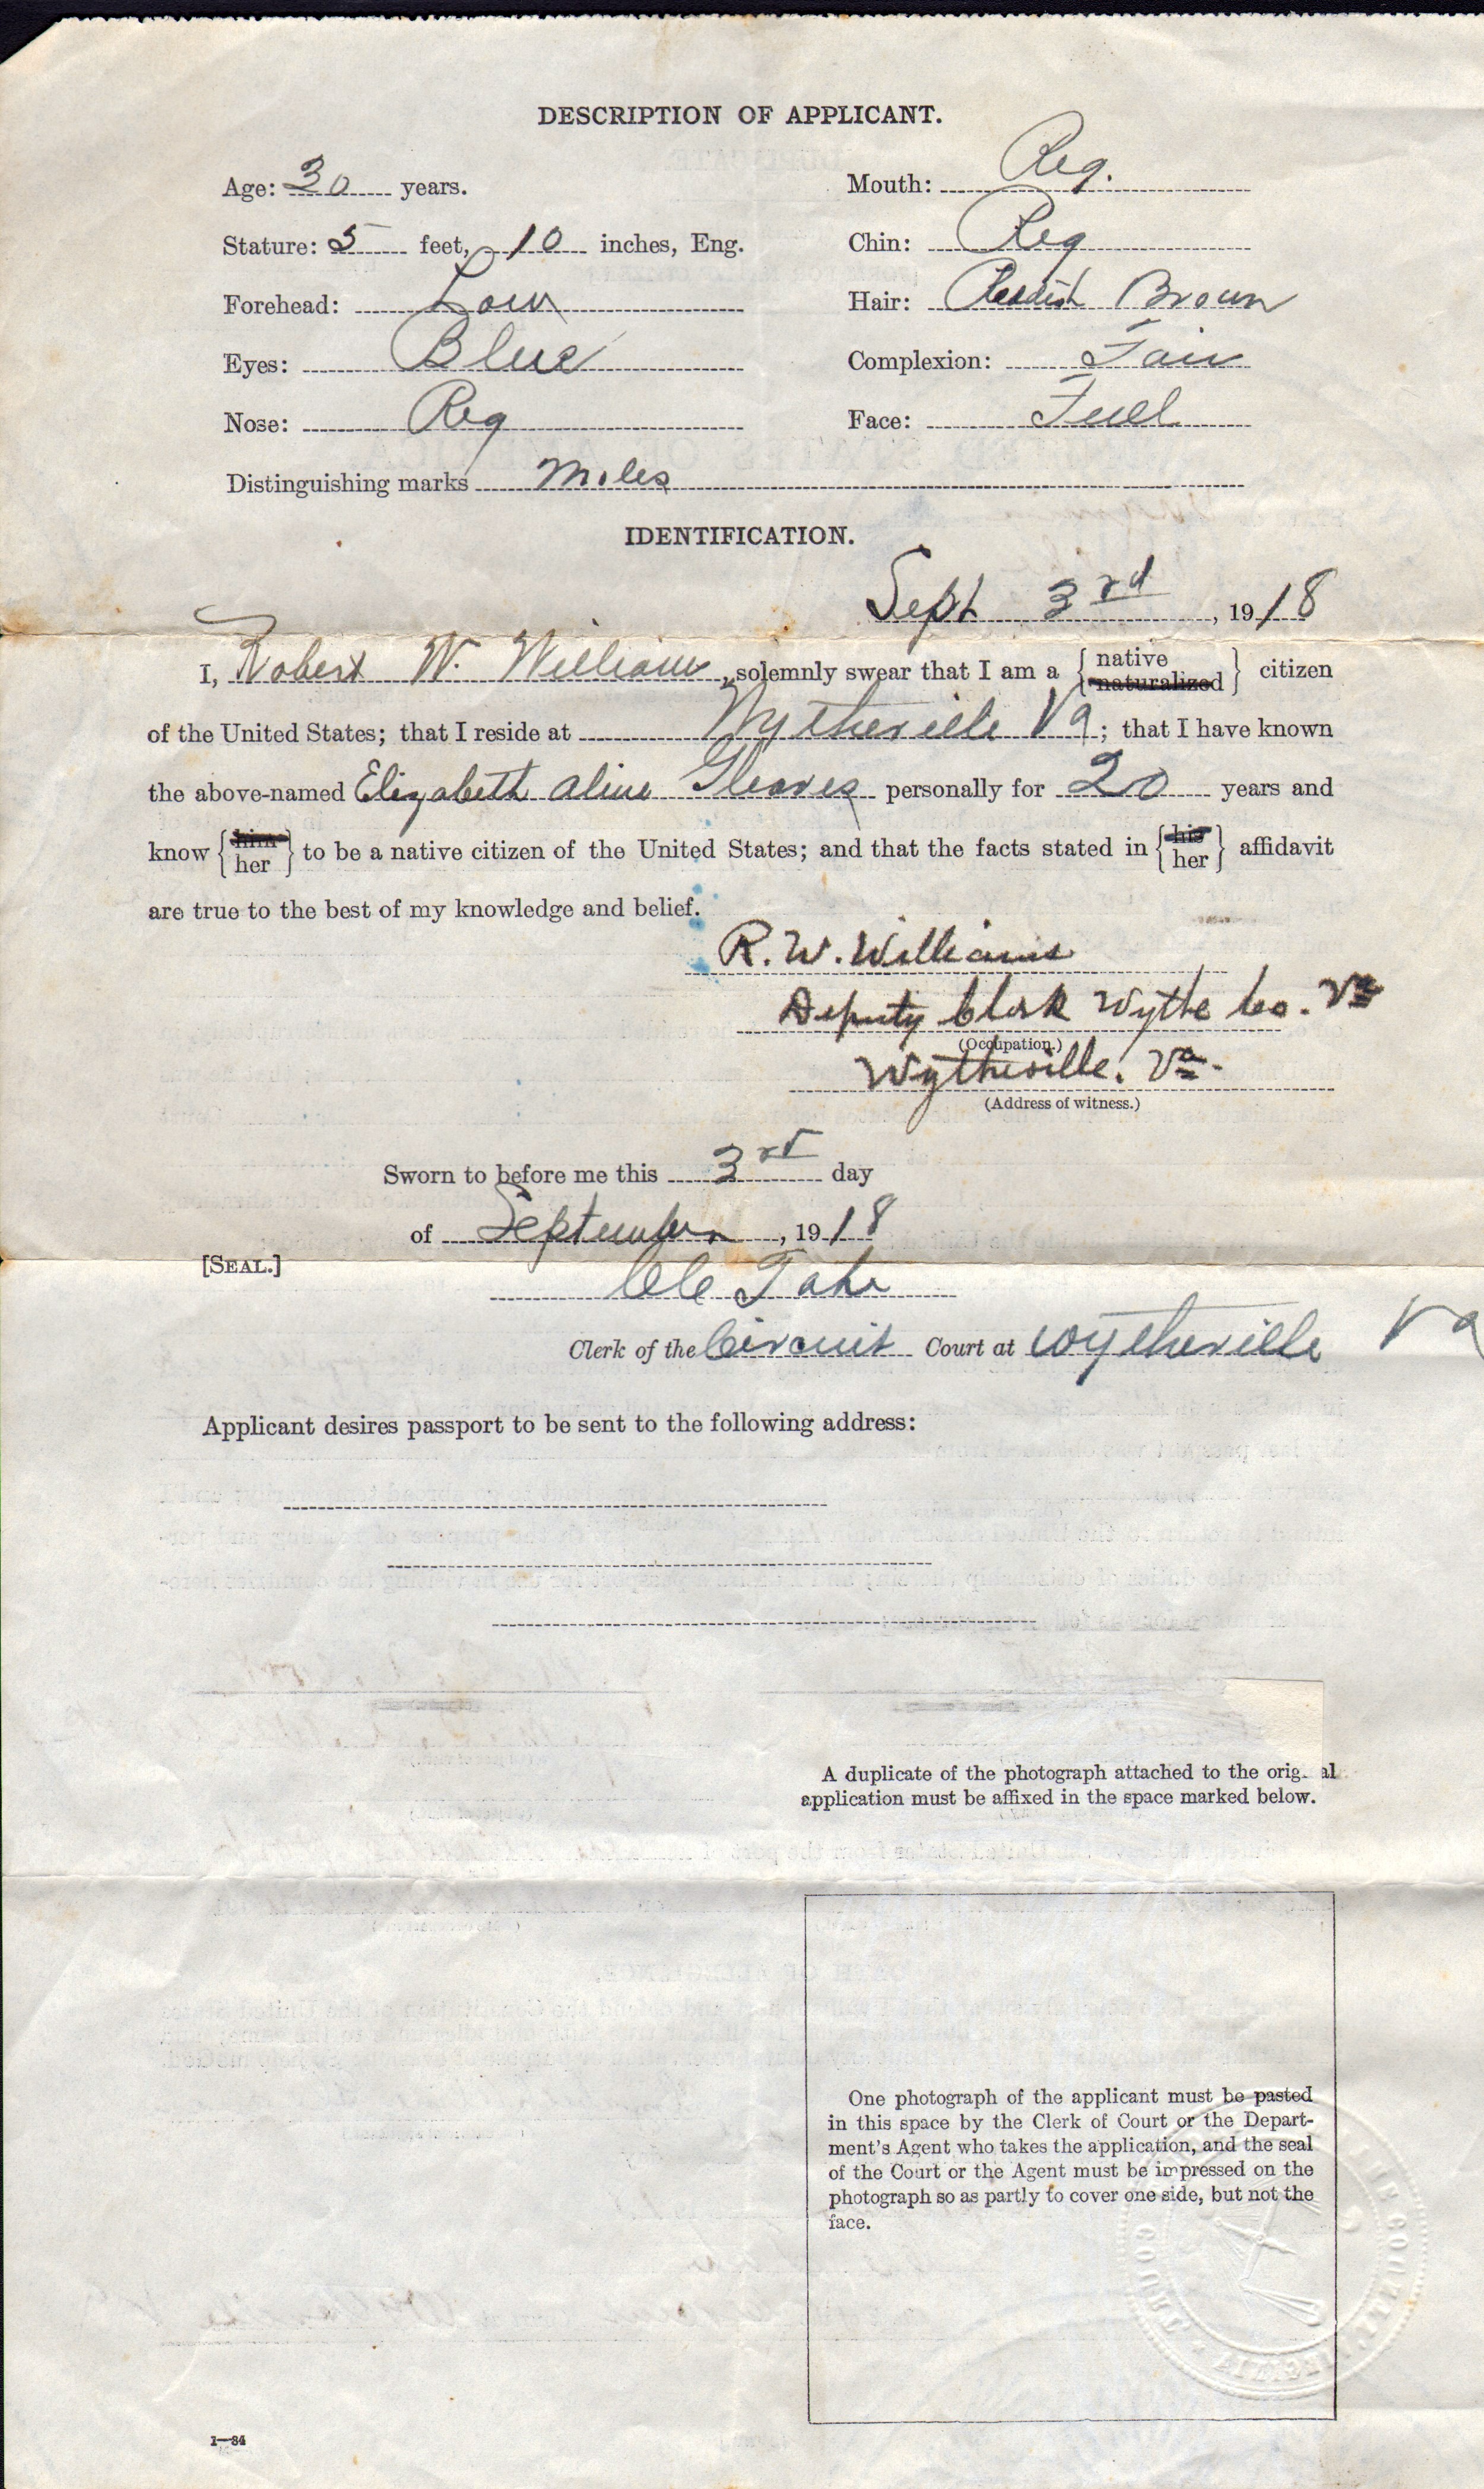 DESCRIPTION OF APPLICANT.
Age: 30 years.
Mouth: Reg.
Stature: 5 feet, 10 inches, Eng.
Chin: Reg
Forehead: Low
Hair: Reddish Brown
Eyes: Blue
Complexion: Fair
Nose: Reg
Face: Full
Distinguishing marks Moles
IDENTIFICATION.
Sept 3rd, 1918
I, Robert W. Williams, solemnly swear that I am a { native naturalized } citizen
of the United States; that I reside at Wytheville Va; that I have known
the above-named Elizabeth Aline Gleaves personally for 20 years and
know { him her } to be a native citizen of the United States; and that the facts stated in { his her } affidavit
are true to the best of my knowledge and belief.
R. W. Williams
Deputy Clerk Wythe Co. Va
(Occupation.)
Wytheville. Va-
(Address of witness.)
Sworn to before me this 3rd day
of September, 1918
[SEAL.]
CC Tate
Clerk of the Circuit Court at Wytheville Va
Applicant desires passport to be sent to the following address:
A duplicate of the photograph attached to the orig al
application must be affixed in the space marked below.
One photograph of the applicant must be pasted
in this space by the Clerk of Court or the Depart-
ment's Agent who takes the application, and the seal
of the Court or the Agent must be impressed on the
photograph so as partly to cover one side, but not the
face.
1—84